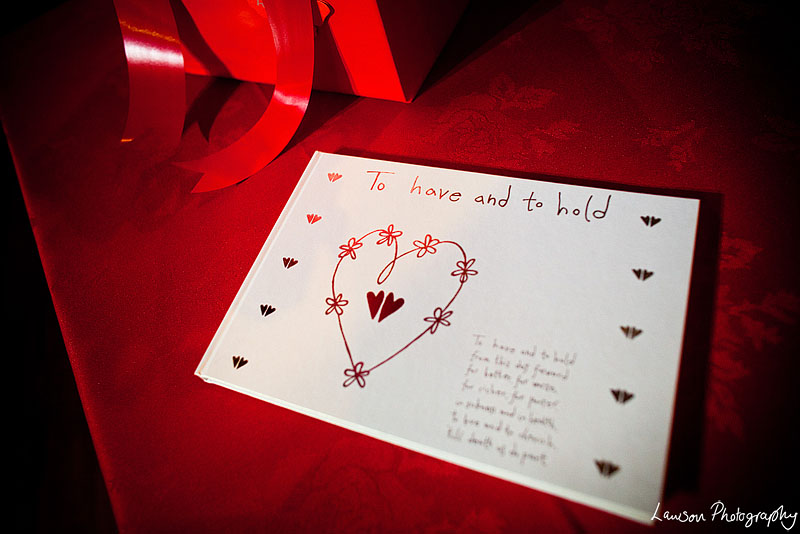 To have and to hold
To have and to hold
from this day forward
for better, for worse,
for richer, for poorer
in sickness and in health,
to love and to cherish,
till death us do part.
Lawson Photography